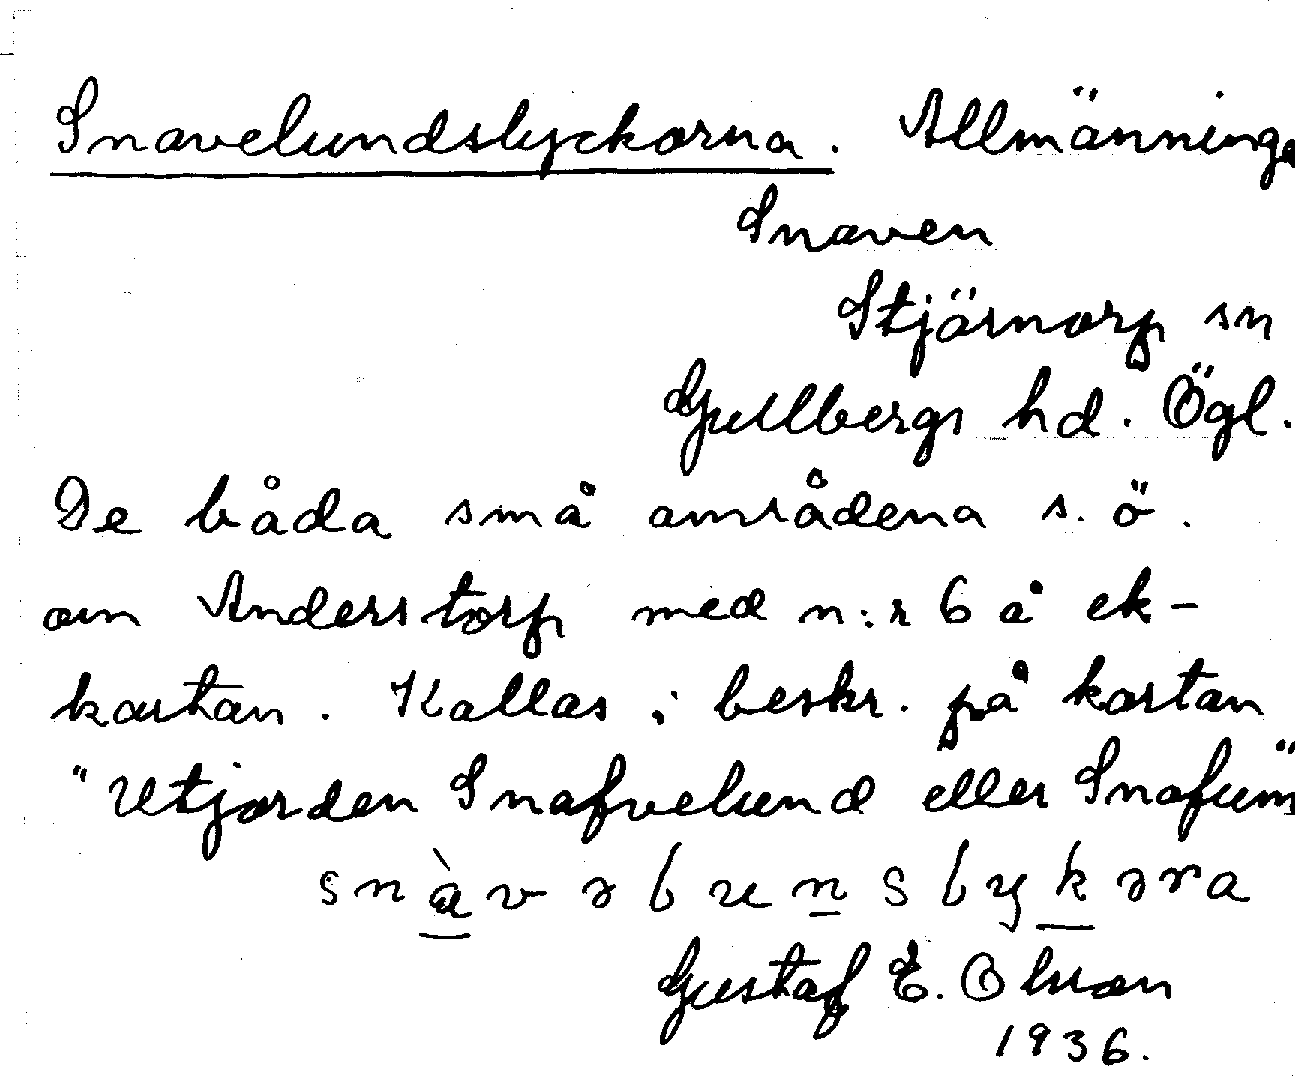 Snavelundslyckorna. Allmänninga
Snaven
Stjärnorp sn
Gullbergs hd. Ögl.
De båda små områdena s. ö.
om Anderstorp med n:r 6 å ek-
kartan. Kallas i beskr. på kartan
"Utjorden Snafvelund eller Snafum"
snàvəlunslykəra
Gustaf E. Olson
1936.